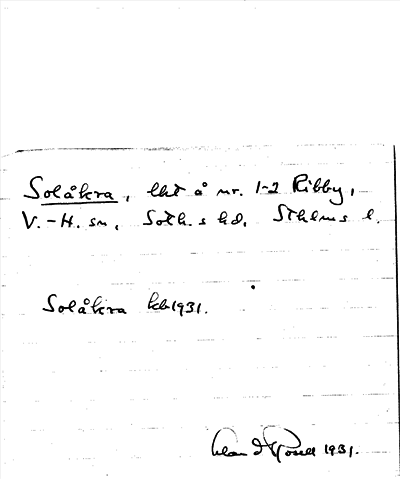 Solåkra, lht å nr. 1-2 Ribby,
V.-H. sn, Soth.s hd, Sthlms l.
Solåkra kb 1931.
1931.